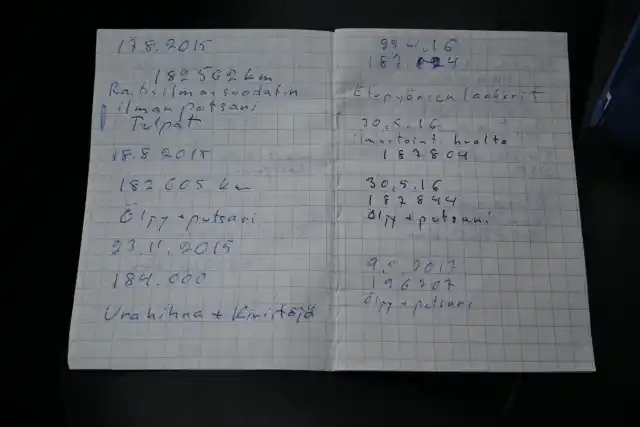 17.8.2015
182 562 km
Raitisilmansuodatin
ilman putsari
Tulpat
18.8 2015
182 605 km
Öljy + putsari
23.11.2015
184.000
Urahihna + Kiristäjä
22.4.16
Etupyörien laakerit
30.5.16
ilmastoint huolto
187 804
30.5.16
187 844
Öljy + putsari
9.5.2017
196207
Öljy + putsari